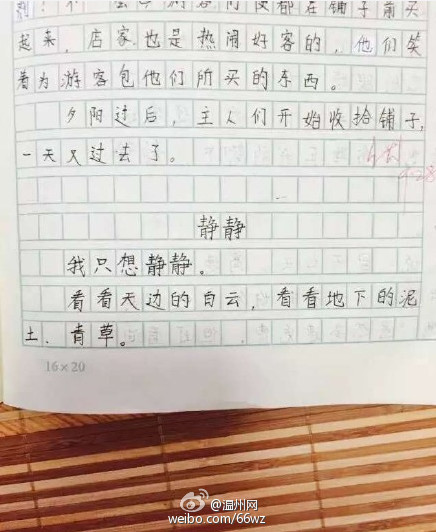 去
都在铺子前买
起来，店家也是热闹好客的，他们笑
着为游客包他们所买的东西。
夕阳过后，主人们开始收拾铺子，
一天又过去了。
静静
我只想静静。
看看天边的白云，看看地下的泥
土、青草。
16×20
温州网
weibo.com/66wz